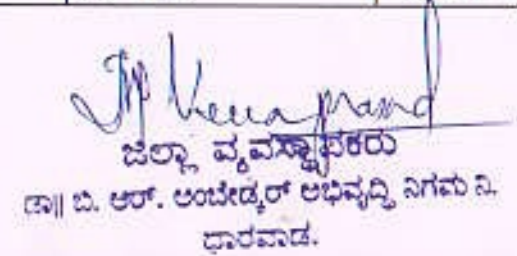 ಜಿಲ್ಲಾ ವ್ಯವಸ್ಥಾಪಕರು
ಡಾ|| ಬಿ. ಆರ್. ಅಂಬೇಡ್ಕರ್ ಅಭಿವೃದ್ಧಿ ನಿಗಮ ನಿ.
ಧಾರವಾಡ.